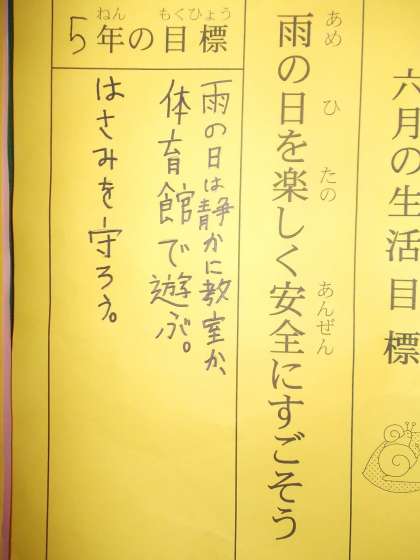 六月の生活目標
あめ ひ たの あんぜん
雨の日を楽しく安全にすごそう
ねん もくひょう
5年の目標
雨の日は静かに教室か、
体育館で遊ぶ。
はさみを守ろう。